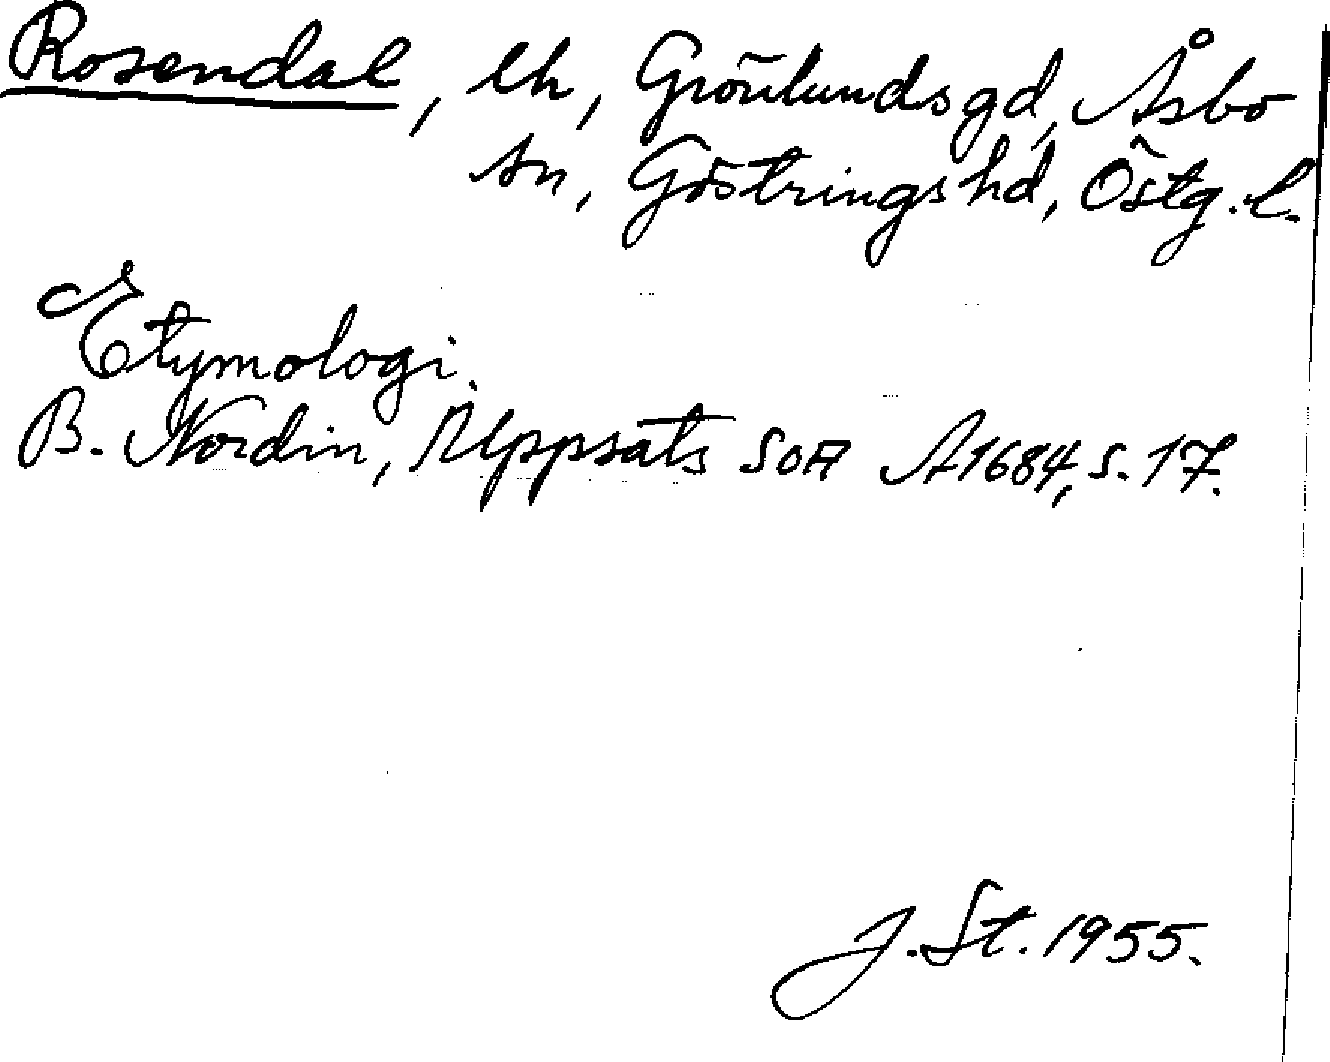 Rosendal, lh, Grönlunds gd, Åsbo
sn, Göstrings hd, Östg. l.
Etymologi.
B. Nordin, Uppsats SOA A1684, s. 17.
J. St. 1955.